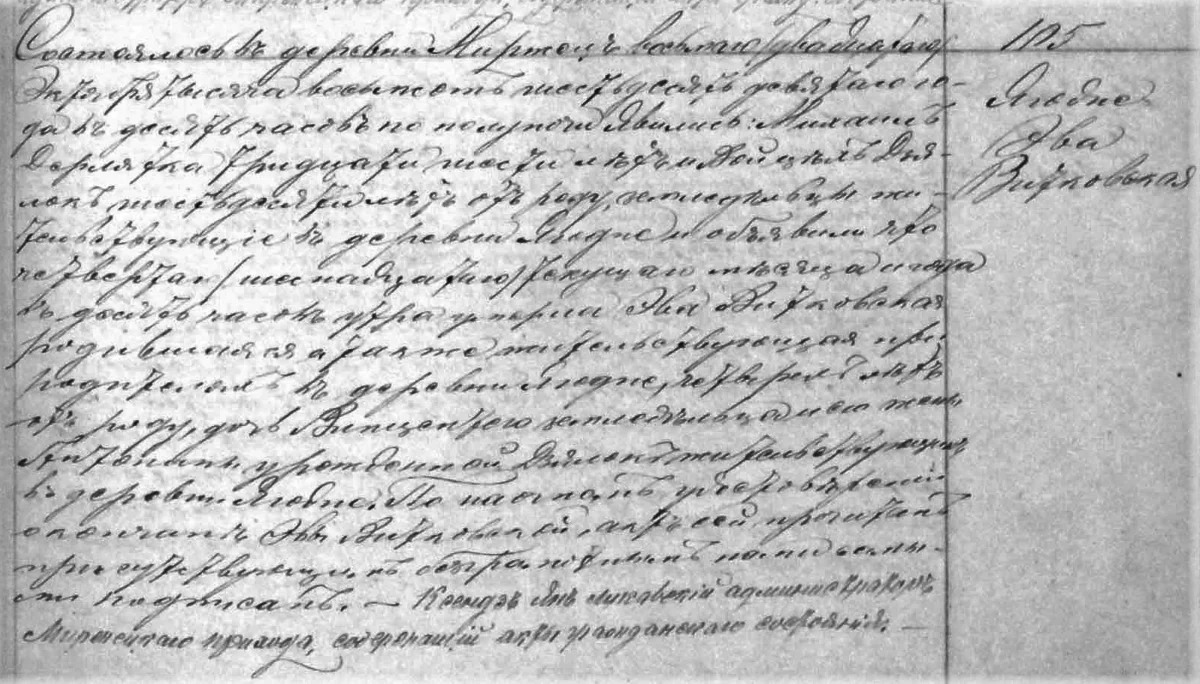 Состоялось въ деревни Миржецъ восьмаго /двадцатаго/
Октября тысяча восьмсотъ шестьдесятъ девятаго го-
да въ десять часовъ по полуночи. Явились: Михаилъ
тридцати шести лѣтъ и Войцѣхъ Дзя-
локъ шестьдесяти лѣтъ отъ роду, земледѣльцы жи-
тельствующіе въ деревни Любне и объявили что
четвертаго /шеснадцатаго/ текущаго мѣсяца и года
въ десять часовъ утра умерла Эва Витковская
родившаяся а также жительствующая при
родителяхъ въ деревни Любне, четверехъ лѣтъ
отъ роду, дочь Винцентего земледѣльца и его жены
Антонины урожденной Дзялокъ жительствующихъ
въ деревни Любне. По настоящемъ удостовѣреніи
о кончинѣ Эвы Витковской, актъ сей прочитанъ
присутствующимъ неграмотнымъ нами самы-
ми подписанъ. — Ксендзъ Янъ администраторъ
прихода, содержащій акты гражданскаго состоянія. —
105
Любне
Эва
Витковская